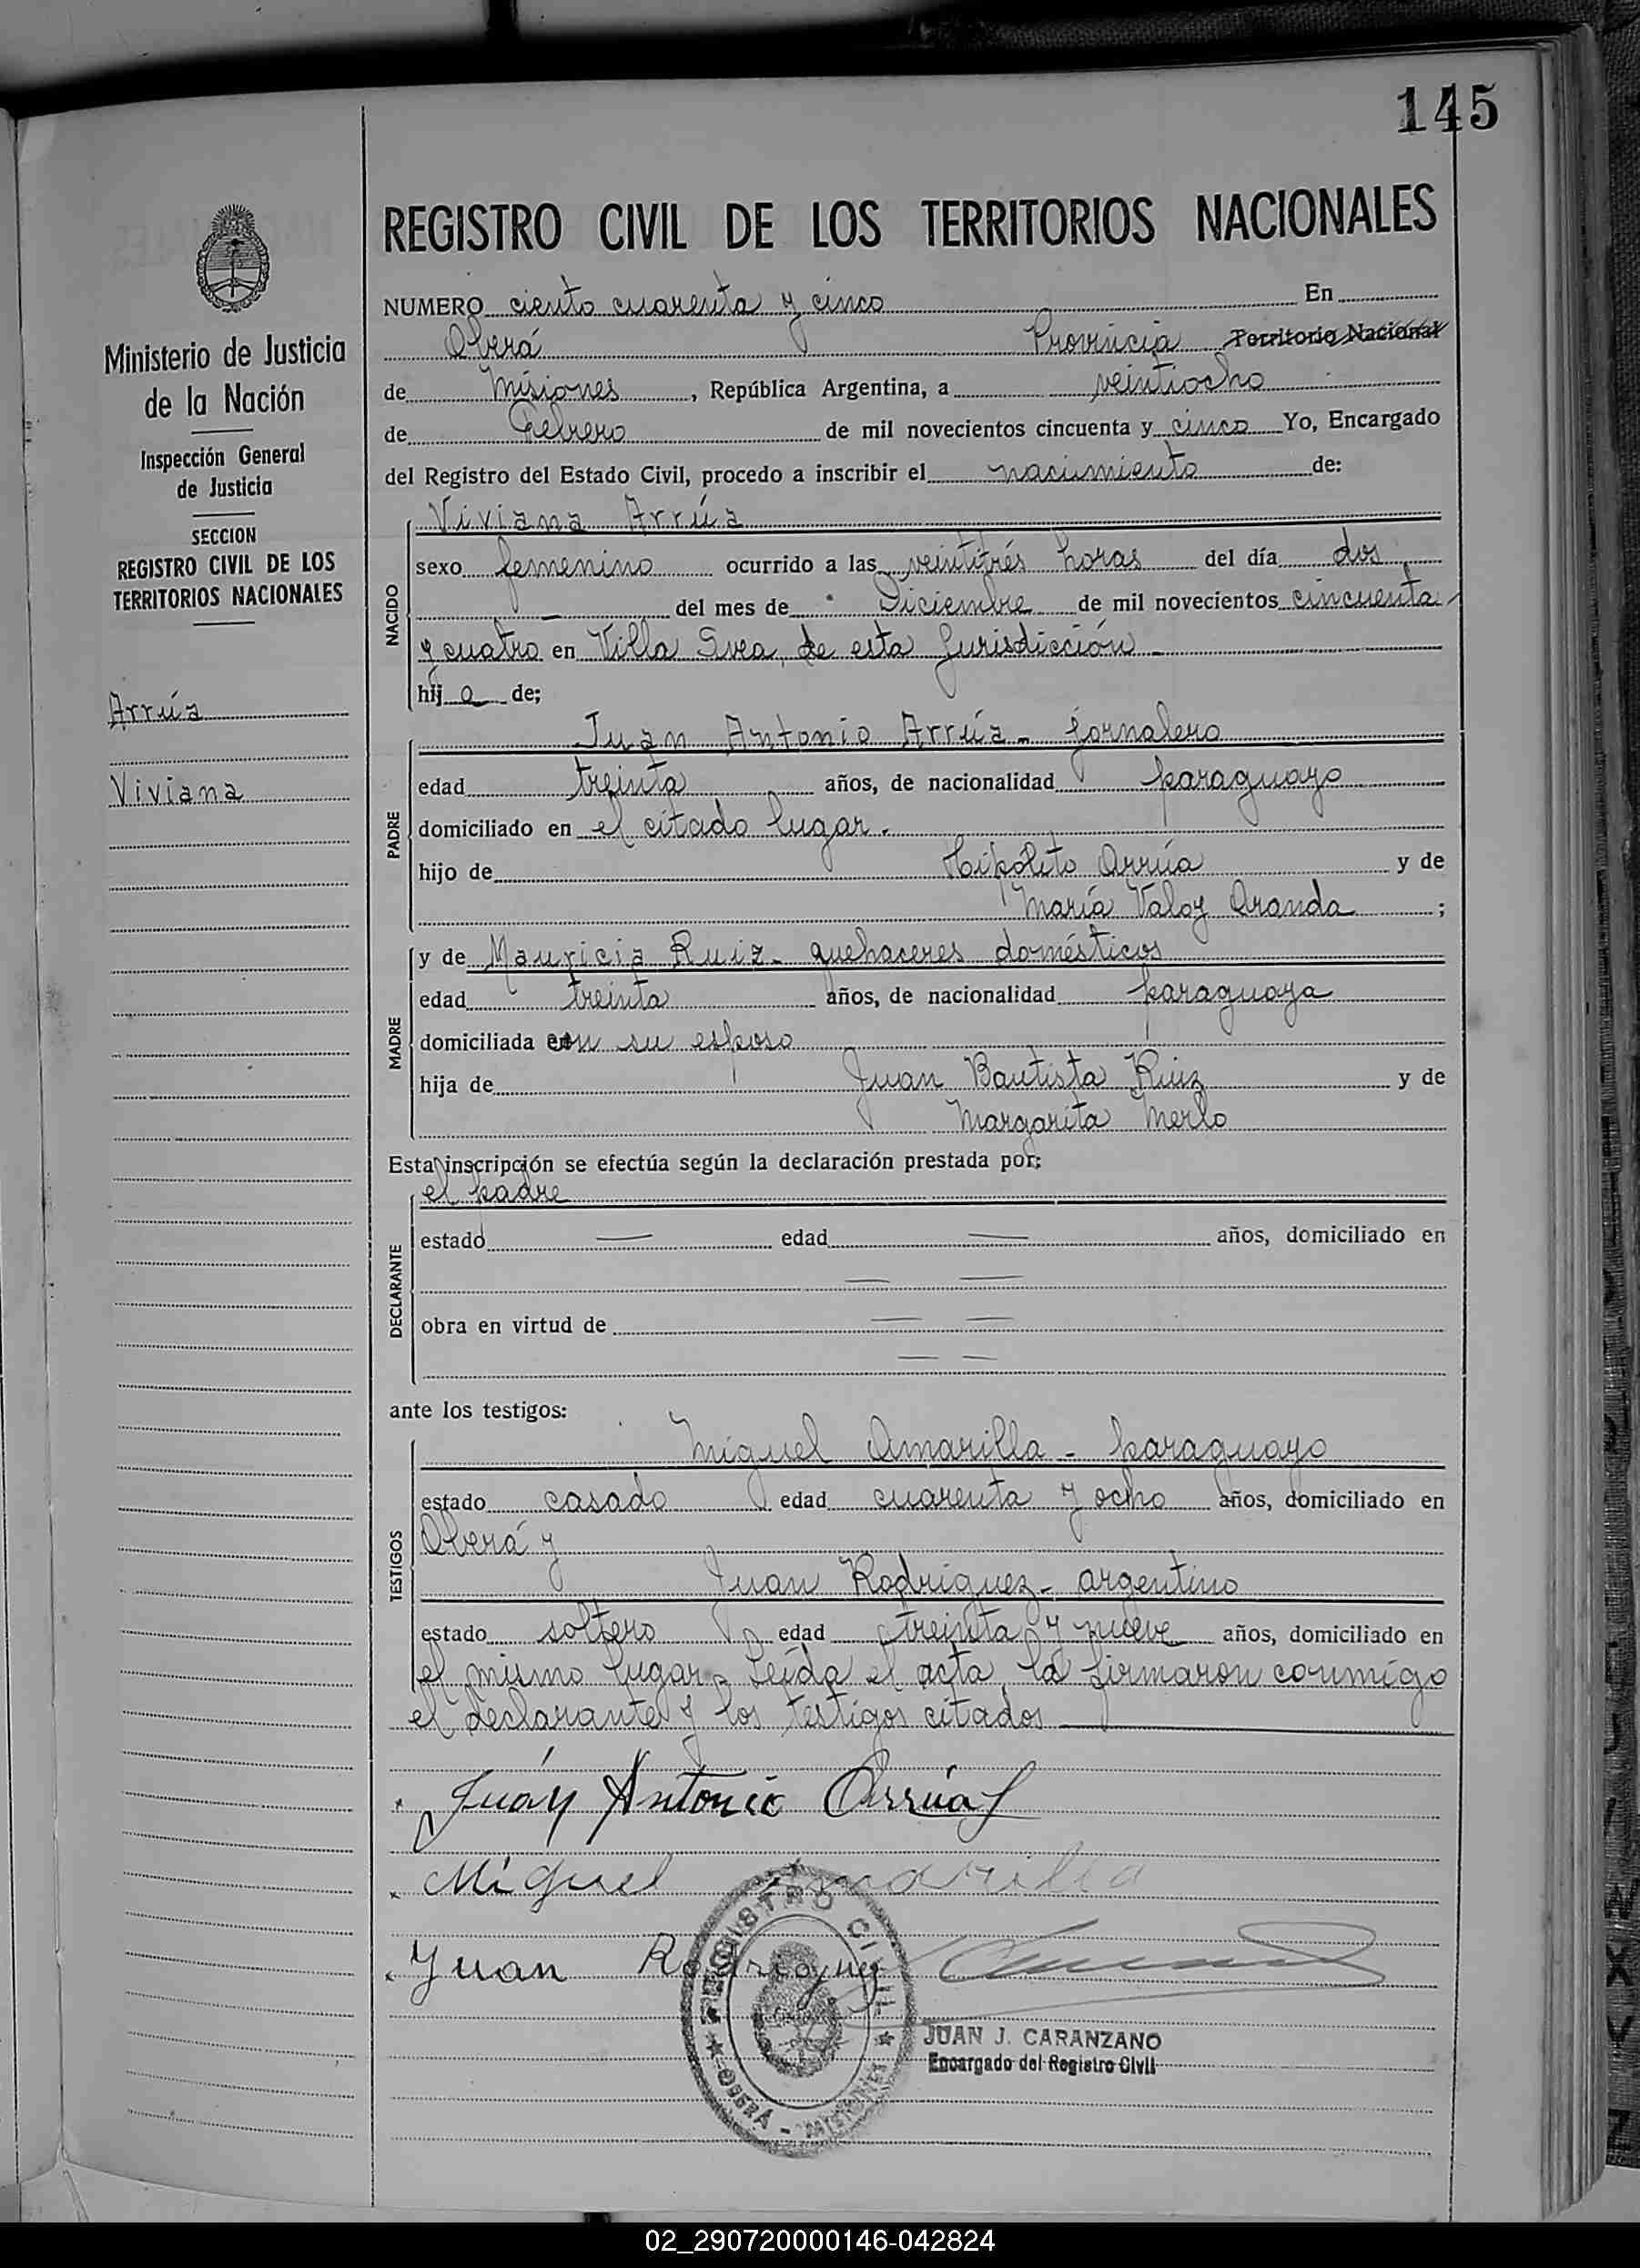 145
REGISTRO CIVIL DE LOS TERRITORIOS NACIONALES
Ministerio de Justicia
de la Nación
Inspección General
de Justicia
SECCION
REGISTRO CIVIL DE LOS
TERRITORIOS NACIONALES
Arrúa
Viviana
NUMERO ciento cuarenta y cinco En
Oberá Provincia Territorio Nacional
de Misiones, República Argentina, a veintiocho
de Febrero de mil novecientos cincuenta y cinco Yo, Encargado
del Registro del Estado Civil, procedo a inscribir el nacimiento de:
NACIDO
Viviana Arrúa
sexo femenino ocurrido a las veintitrés horas del día dos
del mes de Diciembre de mil novecientos cincuenta
y cuatro en Villa Svea, de esta Jurisdicción
hij a de;
PADRE
Juan Antonio Arrúa - jornalero
edad treinta años, de nacionalidad paraguayo
domiciliado en el citado lugar.
hijo de Hipólito Arrúa y de
María Valoy Aranda ;
MADRE
y de Mauricia Ruiz - quehaceres domésticos
edad treinta años, de nacionalidad paraguaya
domiciliada con su esposo
hija de Juan Bautista Ruiz y de
Margarita Merlo
Esta inscripción se efectúa según la declaración prestada por:
DECLARANTE
el padre
estado — edad — años, domiciliado en
— —
obra en virtud de — —
— —
ante los testigos:
TESTIGOS
Miguel Amarilla - paraguayo
estado casado edad cuarenta y ocho años, domiciliado en
Oberá y
Juan Rodriguez - argentino
estado soltero edad treinta y nueve años, domiciliado en
el mismo lugar. Leída el acta, la firmaron conmigo
el declarante y los testigos citados
Juan Antonio Arrúa
Miguel Amarilla
Juan Rodriguez
REGISTRO CIVIL
OBERÁ - MISIONES
JUAN J. CARANZANO
Encargado del Registro Civil
02_290720000146-042824